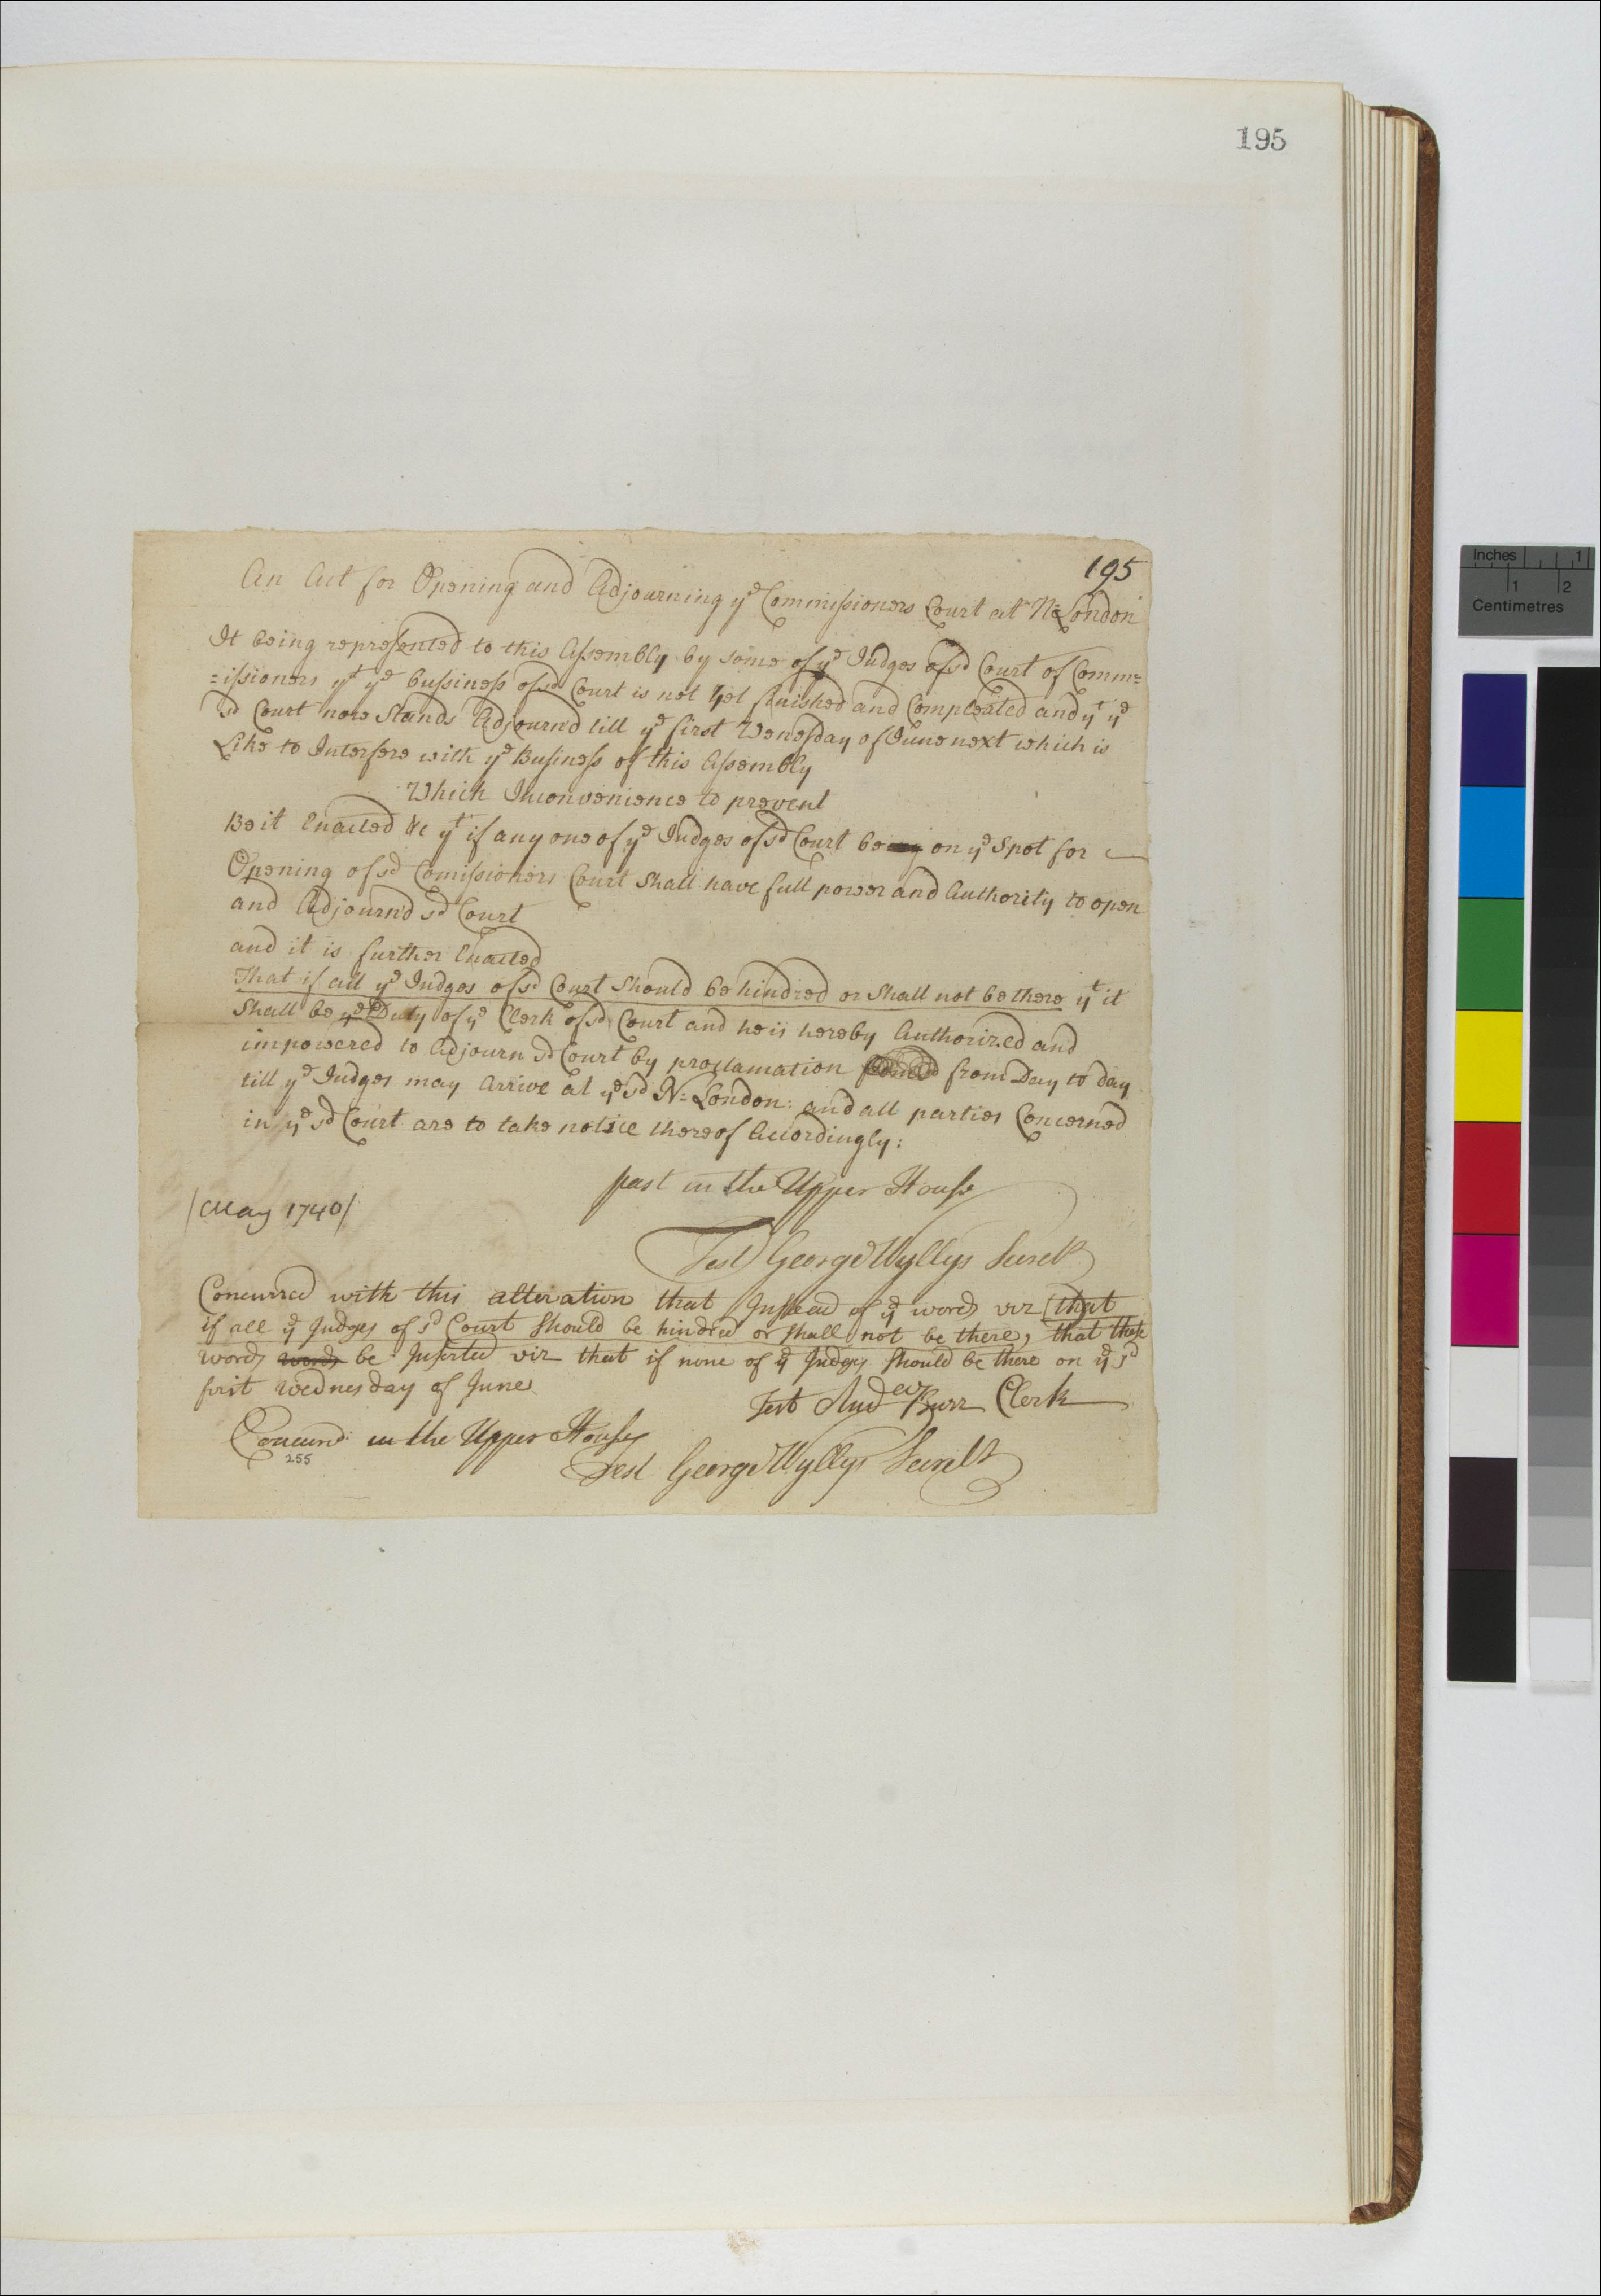 195
195
An Act for Opening and Adjourning yᵉ Commissioners Court at N=London
It being represented to this Assembly by some of yᵉ Judges of sᵈ Court of Comm=
=issioners yᵗ yᵉ bussiness of sᵈ Court is not yet finished and Compleated and yᵗ yᵉ
sᵈ Court now Stands Adjourn'd till yᵉ first Wenesday of June next which is
Like to Interfere with yᵉ Business of this Assembly
Which Inconvenience to prevent
Be it Enacted &c yᵗ if any one of yᵉ Judges of sᵈ Court be on yᵉ Spot for
Opening of sᵈ Comissioners Court Shall have full power and Authority to open
and Adjourn'd sᵈ Court
and it is further Enacted
That if all yᵉ Judges of sᵈ Court Should be hindred or Shall not be there yᵗ it
Shall be yᵉ Duty of yᵉ Clerk of sᵈ Court and he is hereby Authorized and
impowered to Adjourn sᵈ Court by proclamation from Day to day
till yᵉ Judges may Arrive at yᵉ sᵈ N=London: and all parties Concerned
in yᵉ sᵈ Court are to take notice thereof Accordingly:
past in the Upper House
/May 1740/
Test George Wyllys Secretʸ
Concurred with this alteration that Instead of yᵉ words viz (that
if all yᵉ Judges of sᵈ Court Should be hindred or Shall not be there, that these
words words be Inserted viz that if none of yᵉ Judges Should be there on yᵉ sᵈ
first Wednesday of June
Test Andᵉʷ Burr Clerk
Concurᵈ: in the Upper House
255
Test George Wyllys Secretʸ
Inches 1
1 2
Centimetres